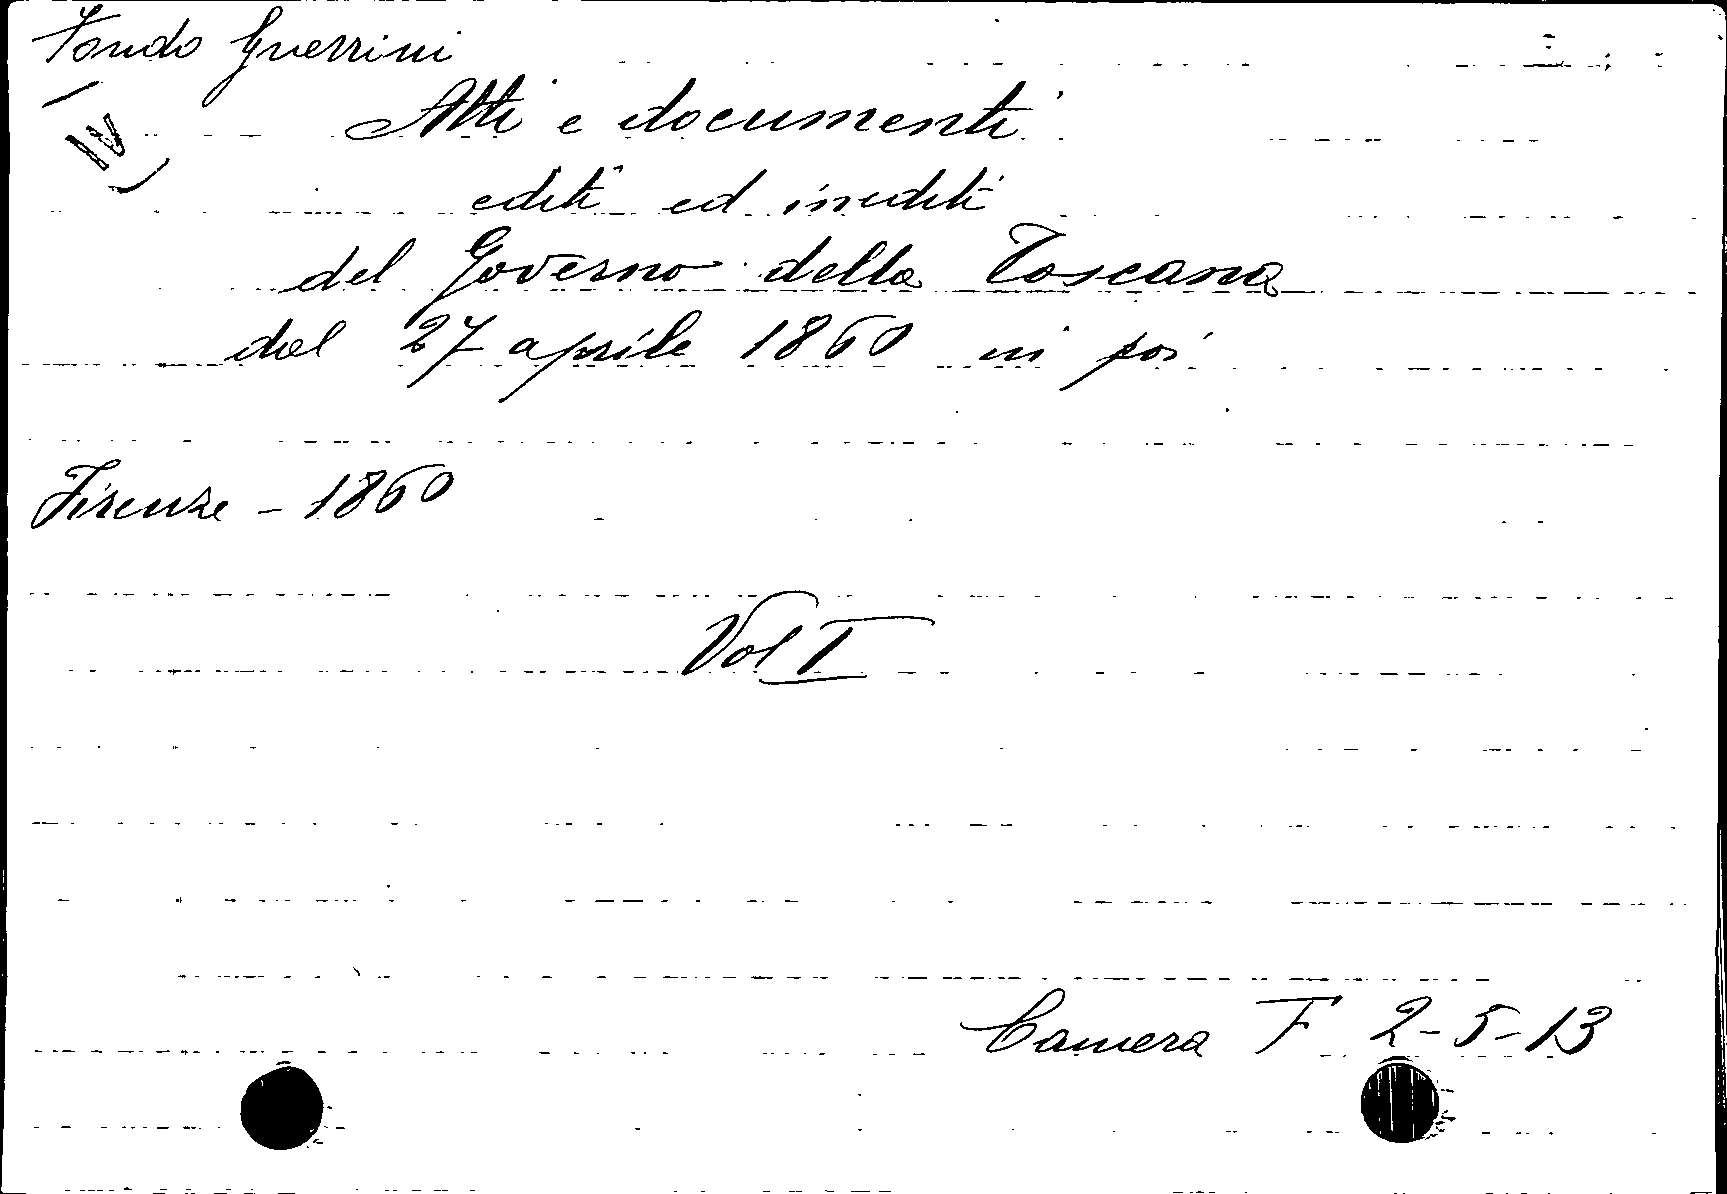 Fondo Guerrini
IV
Atti e documenti
editi ed inediti
del Governo della Toscana
dal 27 aprile 1860 in poi
Firenze - 1860
Vol I
Camera F 2-5-13